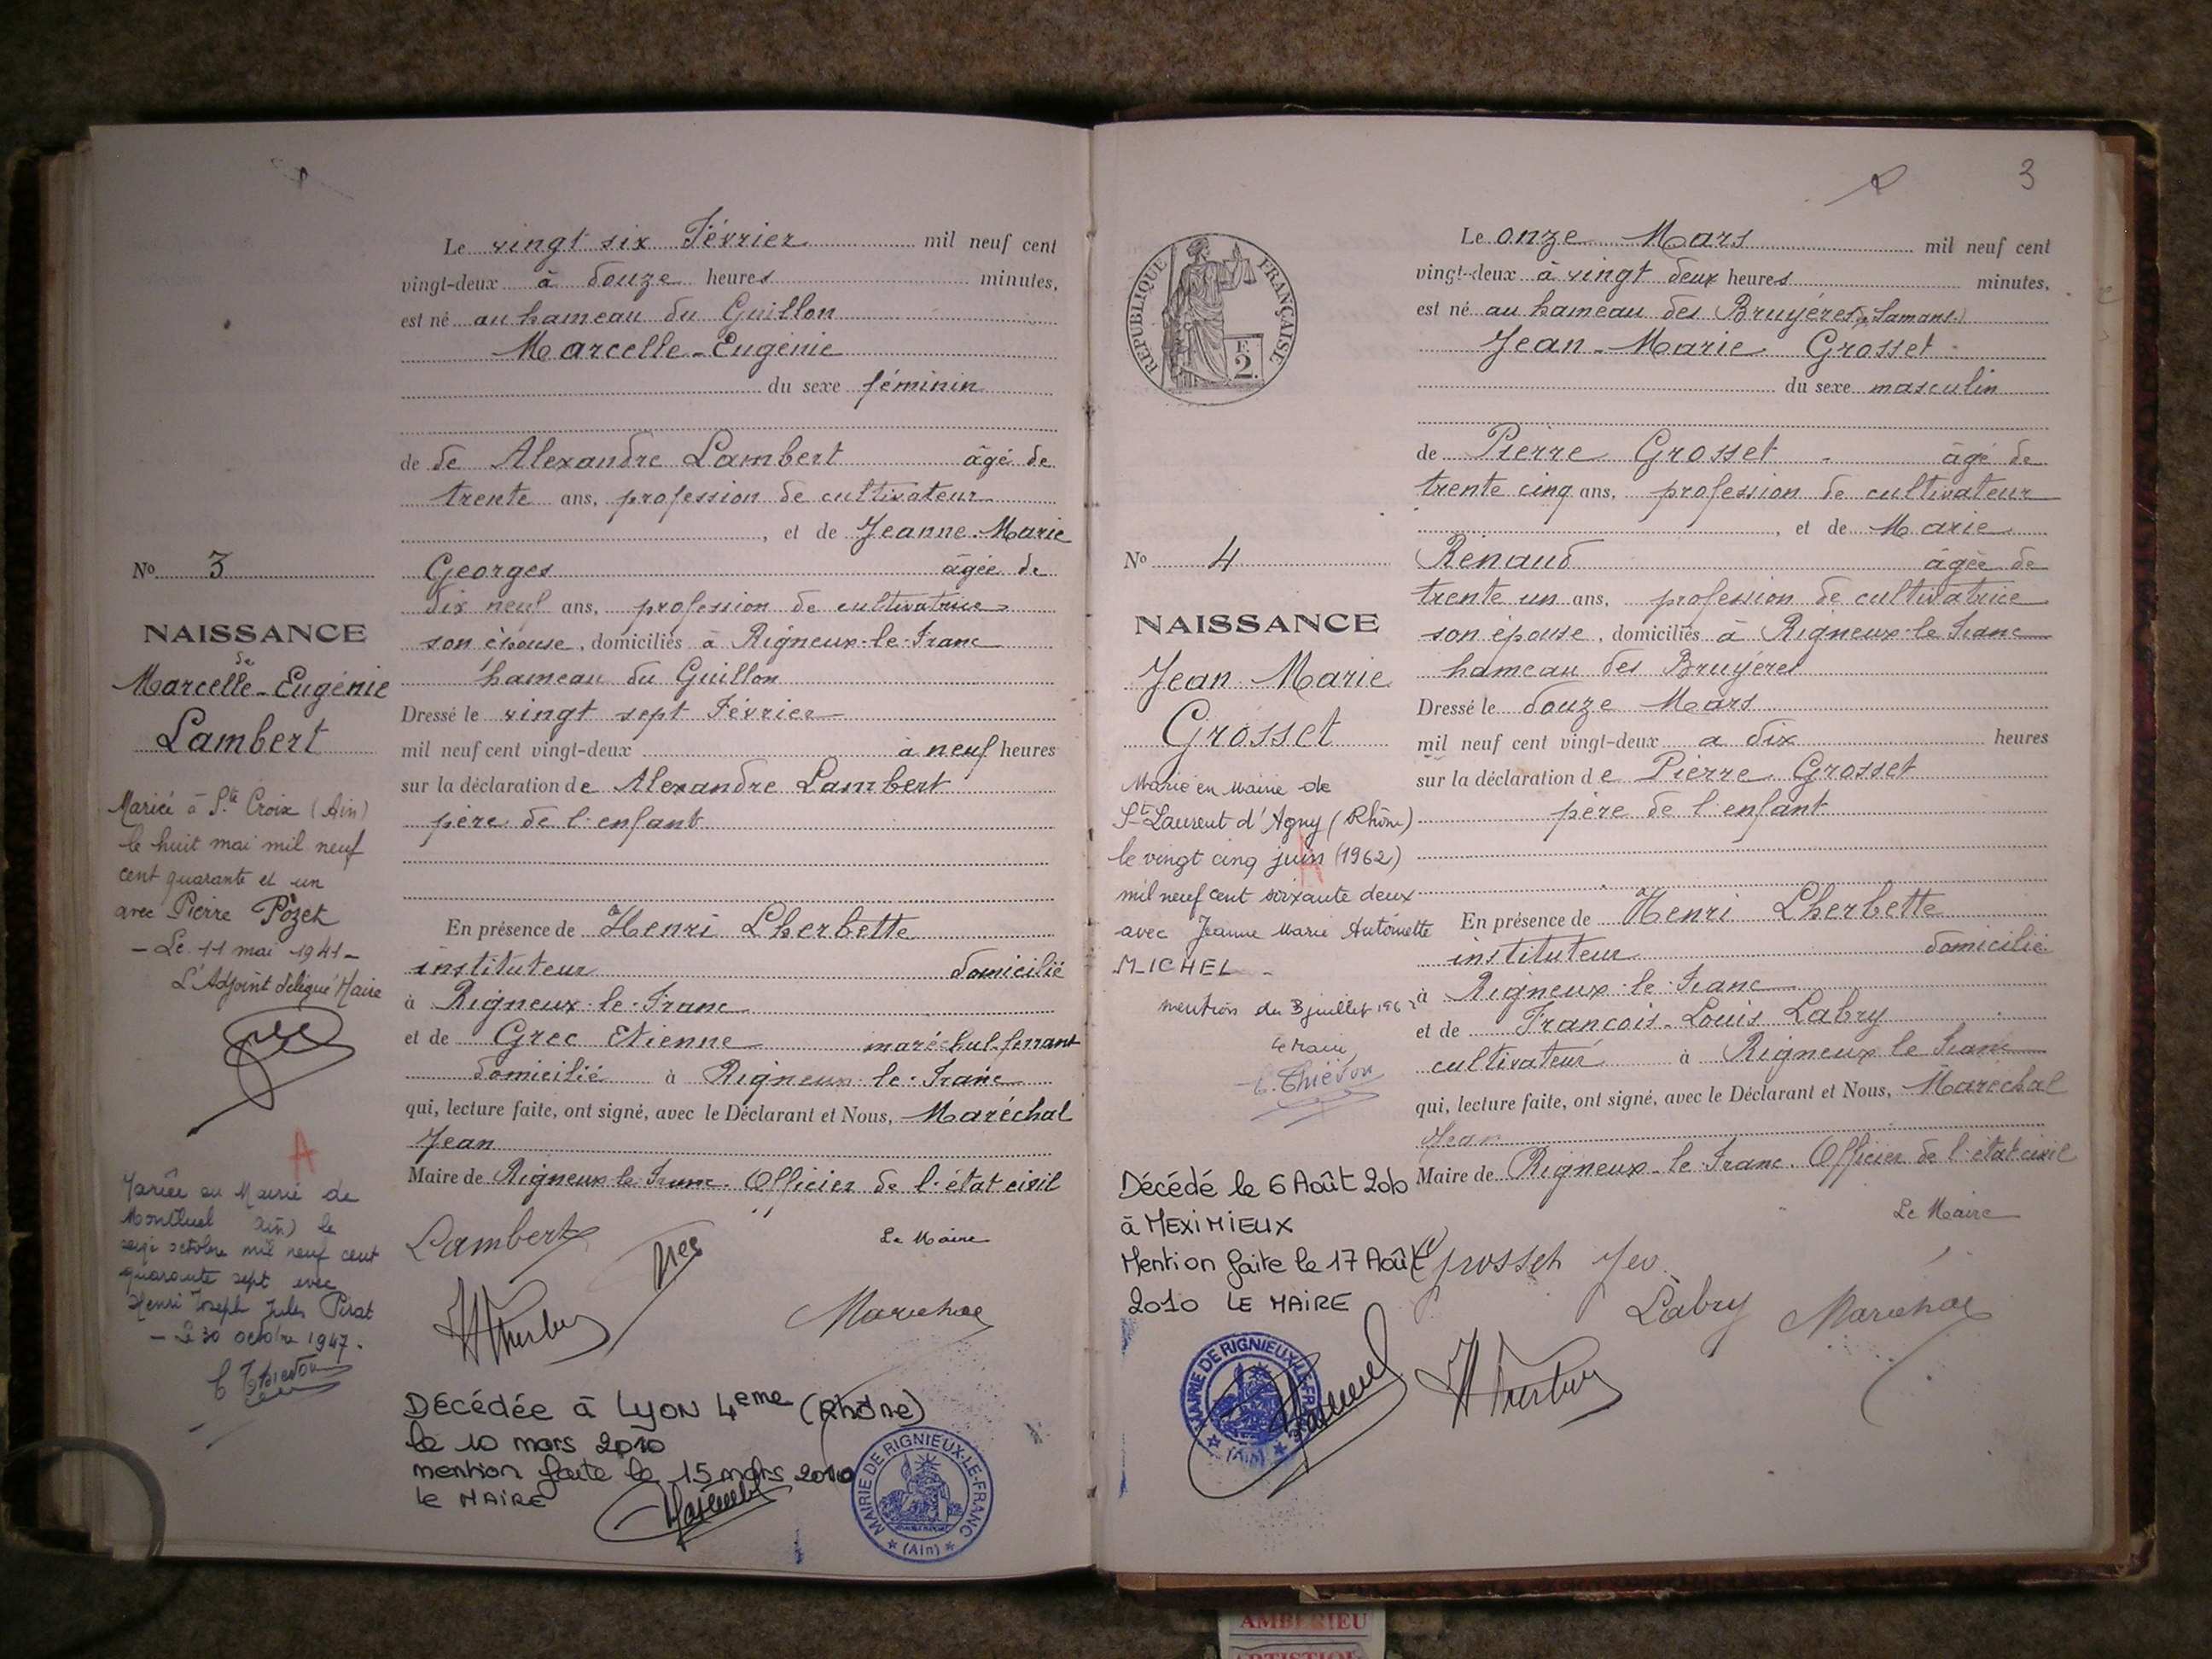 Le vingt six Février mil neuf cent
vingt-deux à douze heures minutes,
est né au hameau du Guillon
Marcelle-Eugénie
du sexe féminin
de de Alexandre Lambert âgé de
trente ans, profession de cultivateur
, et de Jeanne-Marie
Georges âgée de
dix neuf ans, profession de cultivatrice
son épouse, domiciliés à Rigneux-le-Franc
hameau du Guillon
Dressé le vingt sept Février
mil neuf cent vingt-deux à neuf heures
sur la déclaration de Alexandre Lambert
père de l'enfant
En présence de Henri Lherbette
instituteur domicilié
à Rigneux-le-Franc
et de Grec Etienne maréchal-ferrant
domicilié à Rigneux-le-Franc
qui, lecture faite, ont signé, avec le Déclarant et Nous, Maréchal
Jean
Maire de Rigneux-le-Franc. Officier de l'état civil
Lambert
Le Maire
Marechal
Décédée à Lyon 4eme (Rhône)
le 10 mars 2010
mention faite le 15 mars 2010
Le MAIRE
MAIRIE DE RIGNIEUX-LE-FRANC
(Ain)
No 3
NAISSANCE
de
Marcelle-Eugénie
Lambert
Mariée à Ste Croix (Ain)
le huit mai mil neuf
cent quarante et un
avec Pierre Pozet
- Le 11 mai 1941 -
L'Adjoint délégué Maire
A
Mariée en Mairie de
Montluel Ain) le
seize octobre mil neuf cent
quarante sept avec
Henri Joseph Jules Pirat
- Le 30 octobre 1947.
C Thiévon
3
REPUBLIQUE FRANÇAISE
F.
2.
Le onze Mars mil neuf cent
vingt-deux à vingt deux heures minutes,
est né au hameau des Bruyéres (Samans)
Jean-Marie Grosset
du sexe masculin
de Pierre Grosset âgé de
trente cinq ans, profession de cultivateur
, et de Marie
Renaud âgée de
trente un ans, profession de cultivatrice
son épouse, domiciliés à Rigneux-le-Franc
hameau des Bruyéres
Dressé le douze Mars
mil neuf cent vingt-deux a dix heures
sur la déclaration de Pierre Grosset
père de l'enfant
En présence de Henri Lherbette
instituteur domicilié
à Rigneux-le-Franc
et de François-Louis Labry
cultivateur à Rigneux le Franc
qui, lecture faite, ont signé, avec le Déclarant et Nous, Maréchal
Jean
Maire de Rigneux-le-Franc. Officier de l'état civil
Le Maire
Grosset
Labry
Marechal
No 4
NAISSANCE
Jean Marie
Grosset
Marié en Mairie de
St Laurent d'Agny (Rhône)
le vingt cinq juin (1962)
mil neuf cent soixante deux
avec Jeanne Marie Antoinette
MICHEL -
mention du 3 juillet 1962
Le Maire
C. Thiévon
Décédé le 6 Août 2010
à MEXIMIEUX
Mention faite le 17 Août
2010 LE MAIRE
MAIRIE DE RIGNIEUX-LE-FRANC
(Ain)
AMBERIEU